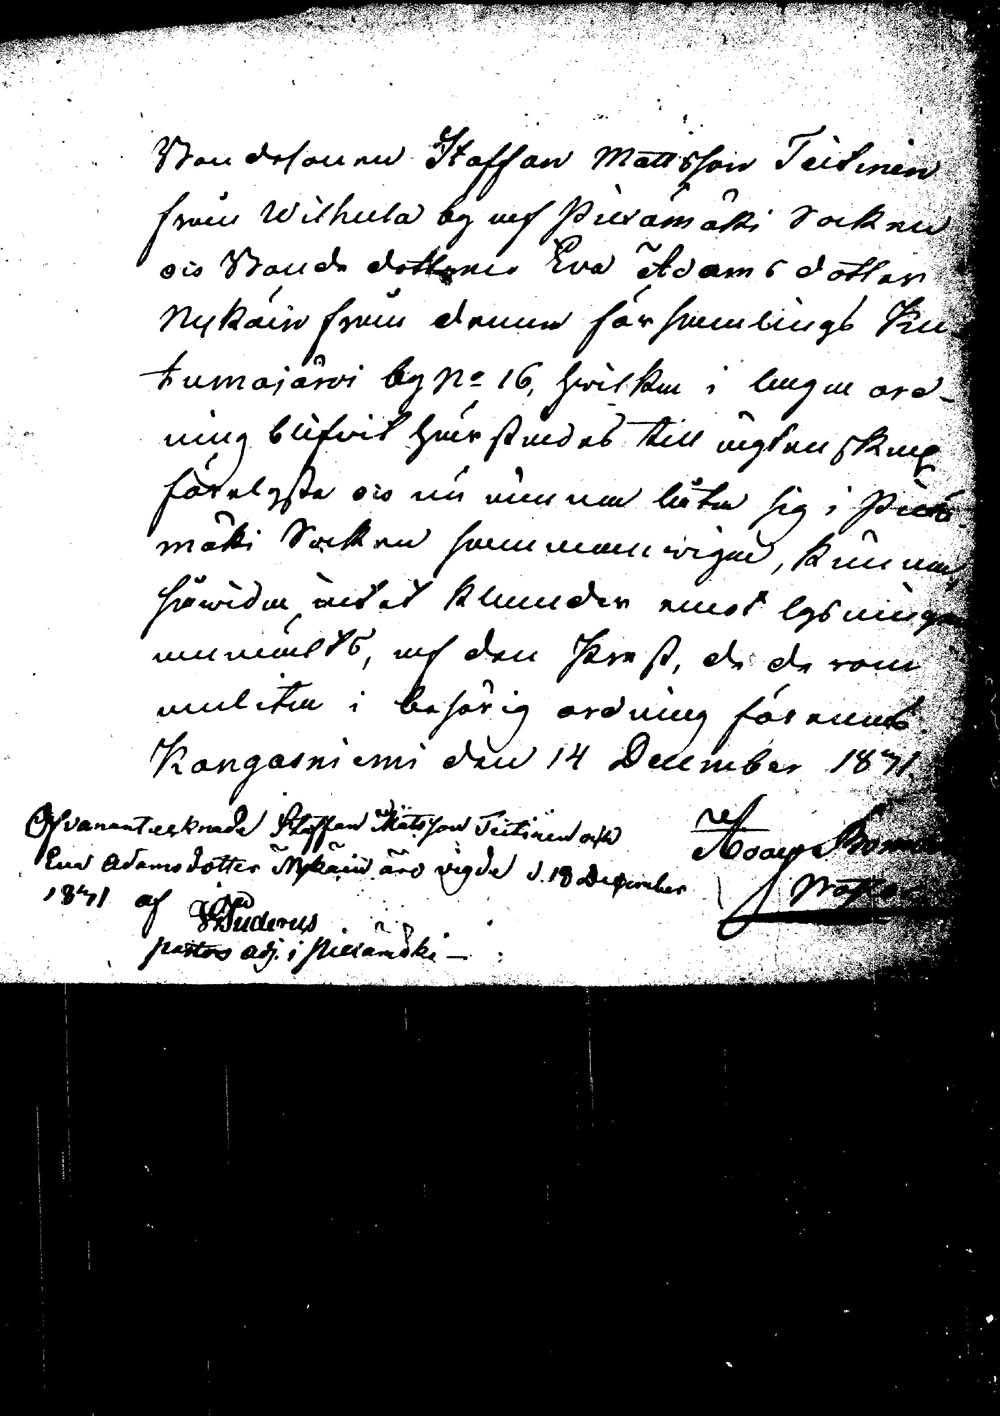 Bondesonen Staffan Mattsson Teitinen
från Wilhula by af Piexämäki Socken
och Bonde dottren Eva Adamsdotter
Nykäin från denna församlings Ku-
tumajärvi by No 16, hwilka i laga ord-
ning blifvit härstädes till ägtenskap
förelyste och nu ämna låta sig i Piexä-
mäki Socken sammanwigas, kunna,
såwida intet klander emot lysningen
anmälts, af den Prest, de derom
anlita i behörig ordning förenas.
Kangasniemi den 14 December 1871.
Adolf
Ofvanantecknade Staffan Matsson Teitinen och
Eva Adamsdotter Nykäin äro vigde d. 18 December
1871 af
pastors adj. i Piexämäki —